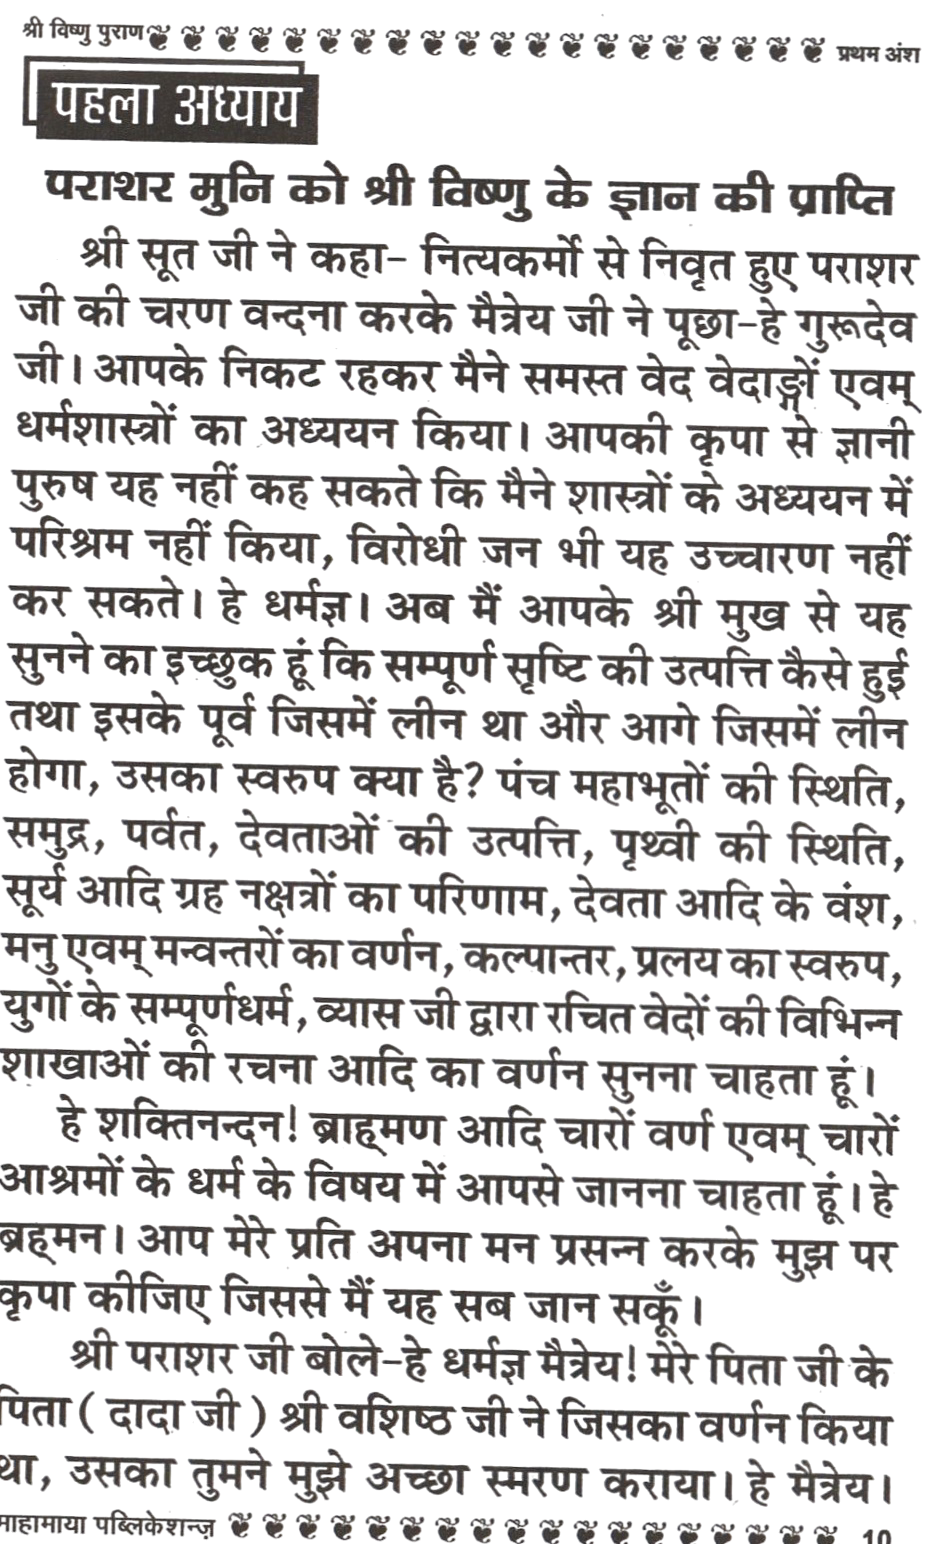 श्री विष्णु पुराण प्रथम अंश
पहला अध्याय
पराशर मुनि को श्री विष्णु के ज्ञान की प्राप्ति
श्री सूत जी ने कहा- नित्यकर्मो से निवृत हुए पराशर
जी की चरण वन्दना करके मैत्रेय जी ने पूछा-हे गुरूदेव
जी। आपके निकट रहकर मैने समस्त वेद वेदाङ्गों एवम्
धर्मशास्त्रों का अध्ययन किया। आपकी कृपा से ज्ञानी
पुरुष यह नहीं कह सकते कि मैने शास्त्रों के अध्ययन में
परिश्रम नहीं किया, विरोधी जन भी यह उच्चारण नहीं
कर सकते। हे धर्मज्ञ। अब मैं आपके श्री मुख से यह
सुनने का इच्छुक हूं कि सम्पूर्ण सृष्टि की उत्पत्ति कैसे हुई
तथा इसके पूर्व जिसमें लीन था और आगे जिसमें लीन
होगा, उसका स्वरुप क्या है? पंच महाभूतों की स्थिति,
समुद्र, पर्वत, देवताओं की उत्पत्ति, पृथ्वी की स्थिति,
सूर्य आदि ग्रह नक्षत्रों का परिणाम, देवता आदि के वंश,
मनु एवम् मन्वन्तरों का वर्णन, कल्पान्तर, प्रलय का स्वरुप,
युगों के सम्पूर्णधर्म, व्यास जी द्वारा रचित वेदों की विभिन्न
शाखाओं की रचना आदि का वर्णन सुनना चाहता हूं।
हे शक्तिनन्दन! ब्राह्मण आदि चारों वर्ण एवम् चारों
आश्रमों के धर्म के विषय में आपसे जानना चाहता हूं। हे
ब्रह्मन। आप मेरे प्रति अपना मन प्रसन्न करके मुझ पर
कृपा कीजिए जिससे मैं यह सब जान सकूँ।
श्री पराशर जी बोले-हे धर्मज्ञ मैत्रेय! मेरे पिता जी के
पिता ( दादा जी ) श्री वशिष्ठ जी ने जिसका वर्णन किया
था, उसका तुमने मुझे अच्छा स्मरण कराया। हे मैत्रेय।
माहामाया पब्लिकेशन्ज़ 10